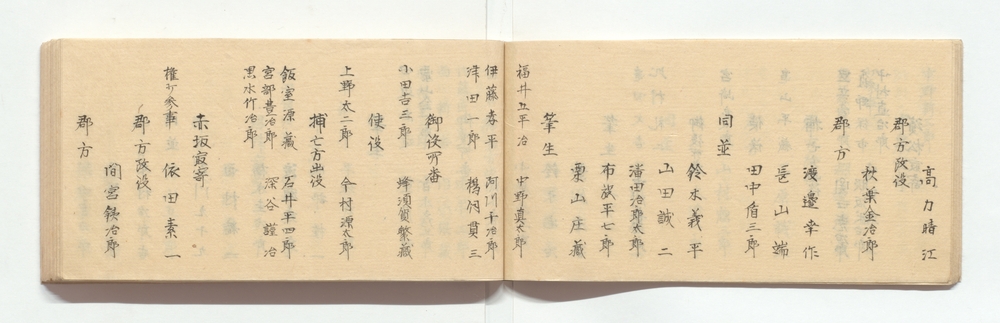 高力晴江
郡方政役
秋葉金治郎
郡方
渡邉幸作
邑山 端
田中盾三郎
同並
鈴木義平
山田誠二
潘田治郎太郎
布施平七郎
栗山庄藏
筆生
福井五平治 中野真太郎
伊藤孝平 阿川千治郎
津田一郎 楊 貫三
御役所番
小田吉三郎 蜂須賀繁藏
使役
上野太二郎 今村源太郎
捕亡方出役
飯室源藏 石井平四郎
宮部豊治郎 深谷謹治
黒水作治郎
赤坂最寄
権少参事 依田素一
郡方政役
間宮銕治郎
郡方